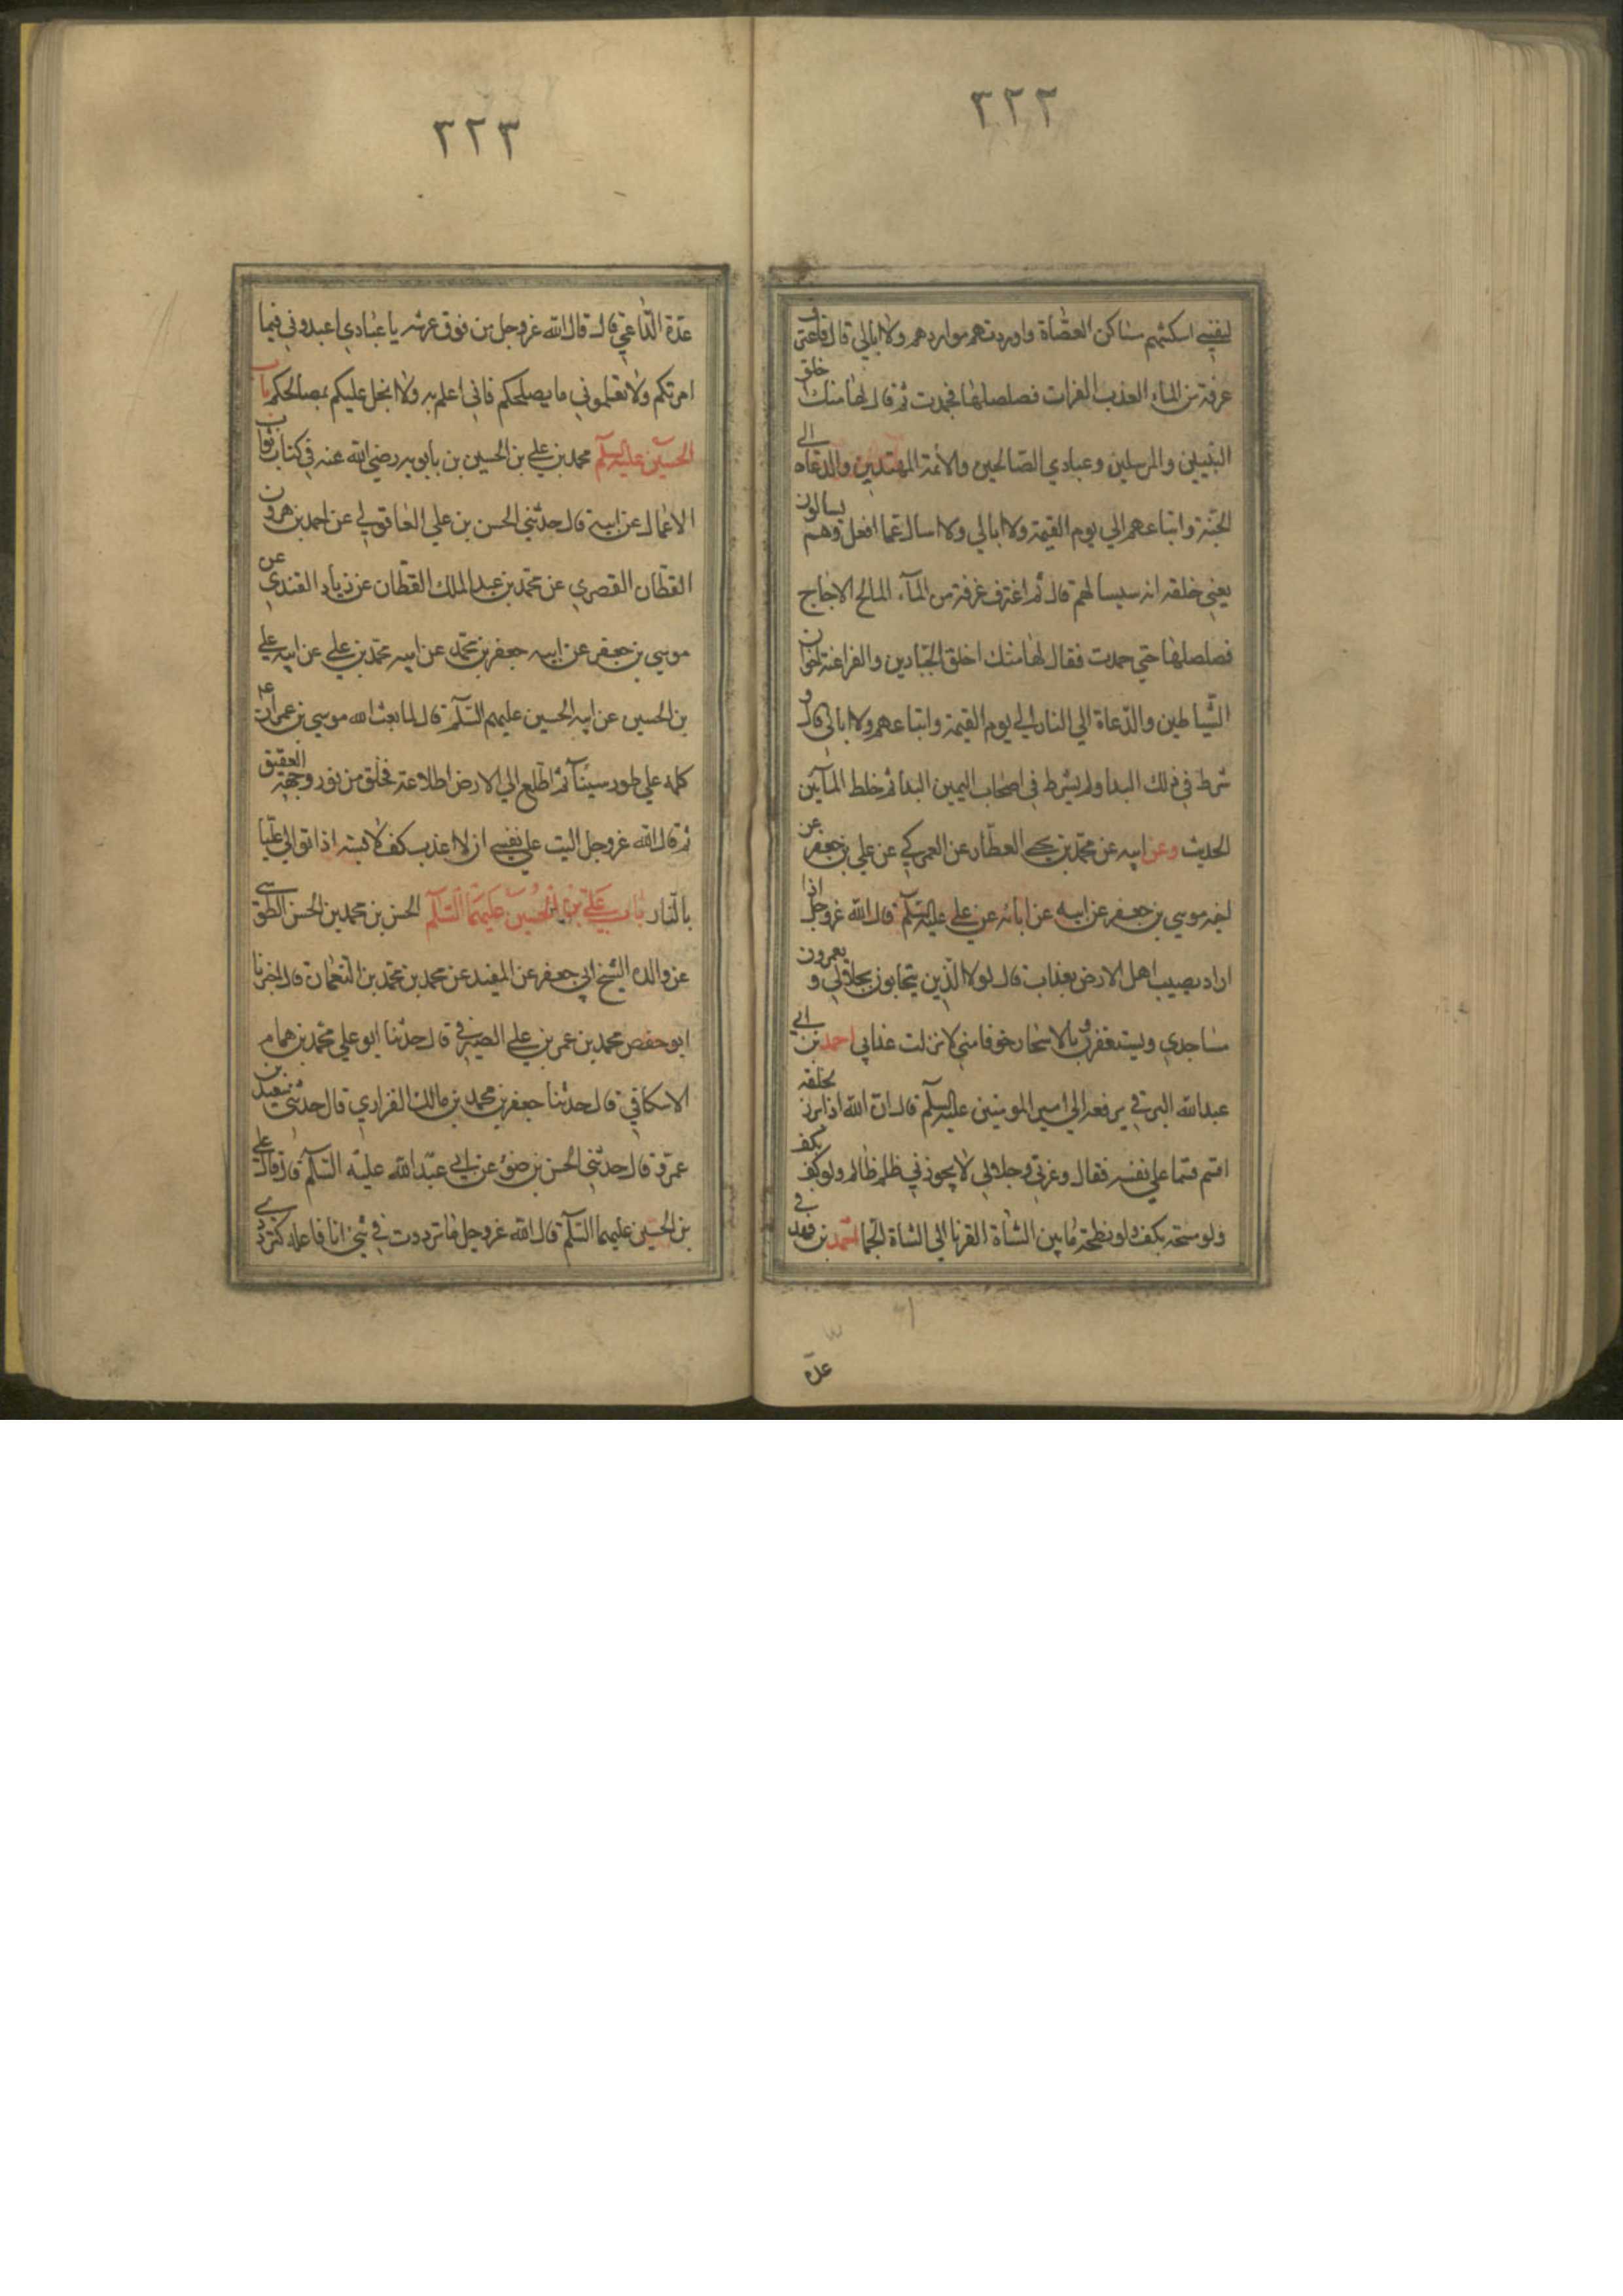 ٢٢٢
لنفسي اسكنتهم مساكن العصاة واوردتهم مواردهم ولا ابالي قال فاغترف
غرفة من الماء العذب الفرات فصلصلها فجمدت ثم قال لها منك اخلق
النبيين والمرسلين وعبادي الصالحين والائمة المهتدين والدعاه الي
الجنة واتباعهم الي يوم القيمة ولا ابالي ولا اسال عما افعل وهم يسالون
يعني خلقه انه سيسالهم قال ثم اغترف غرفة من المآء المالح الاجاج
فصلصلها حتي جمدت فقال لها منك اخلق الجبارين والفراعنة اخوان
الشياطين والدعاة الي النار الي يوم القيمة واتباعهم ولا ابالي قال و
شرط في ذلك البدا ولم يشرط في اصحاب اليمين البدا ثم خلط المآئين
الحديث وعن ابيه عن محمد بن يحيي العطار عن العمركي عن علي بن جعفر عن
اخيه موسي بن جعفر عن ابيه عن ابائه عن علي عليه السلم قال الله عز وجل اذا
اراد يصيب اهل الارض بعذاب قال لولا الذين يتحابون بجلالي و يعمرون
مساجدي ويستغفرون بالاسحار خوفا مني لانزلت عذابي احمد بن ابي
عبد الله البرقي يرفعه الي امير المومنين عليه السلم قال ان الله اذا برز لخلقه
اقسم قسما علي نفسه فقال وعزتي وجلالي لا يجوزني ظلم ظالم ولو كف بكف
ولو مسحة بكف ولو نطحة ما بين الشاة القرنا الي الشاة الجما احمد بن فهد في
عدة
٢٢٣
عدة الداعي قال قال الله عز وجل من فوق عرشه يا عبادي اعبدوني فيما
امرتكم ولا تعلموني ما يصلحكم فاني اعلم به ولا ابخل عليكم بمصالحكم باب
الحسين عليه السلم محمد بن علي بن الحسين بن بابويه رضي الله عنه في كتاب ثواب
الاعمال عن ابيه قال حدثني الحسن بن علي العاقولي عن احمد بن هرون
القطان القصري عن محمد بن عبد الملك القطان عن زياد القندي عن
موسي بن جعفر عن ابيه جعفر بن محمد عن ابيه محمد بن علي عن ابيه علي
بن الحسين عن ابيه الحسين عليهم السلم قال لما بعث الله موسي بن عمران ع
كلمه علي طور سينآ ثم اطلع الي الارض اطلاعة فخلق من نور وجهه العقيق
ثم قال الله عز وجل اليت علي نفسي ان لا اعذب كف لابسه اذا توالي عليا
بالنار باب علي بن الحسين عليهما السلم الحسن بن محمد بن الحسن الطوسي
عن والده الشيخ ابي جعفر عن المفيد عن محمد بن محمد بن النعمان قال اخبرنا
ابو حفص محمد بن عمر بن علي الصيرفي قال حدثنا ابو علي محمد بن همام
الاسكافي قال حدثنا جعفر بن محمد بن مالك الفزاري قال حدثني سعيد بن
عمرو قال حدثني الحسن بن ضوء عن ابي عبد الله عليه السلم قال قال علي
بن الحسين عليهما السلم قال الله عز وجل ما ترددت في شئ انا فاعله كترددي